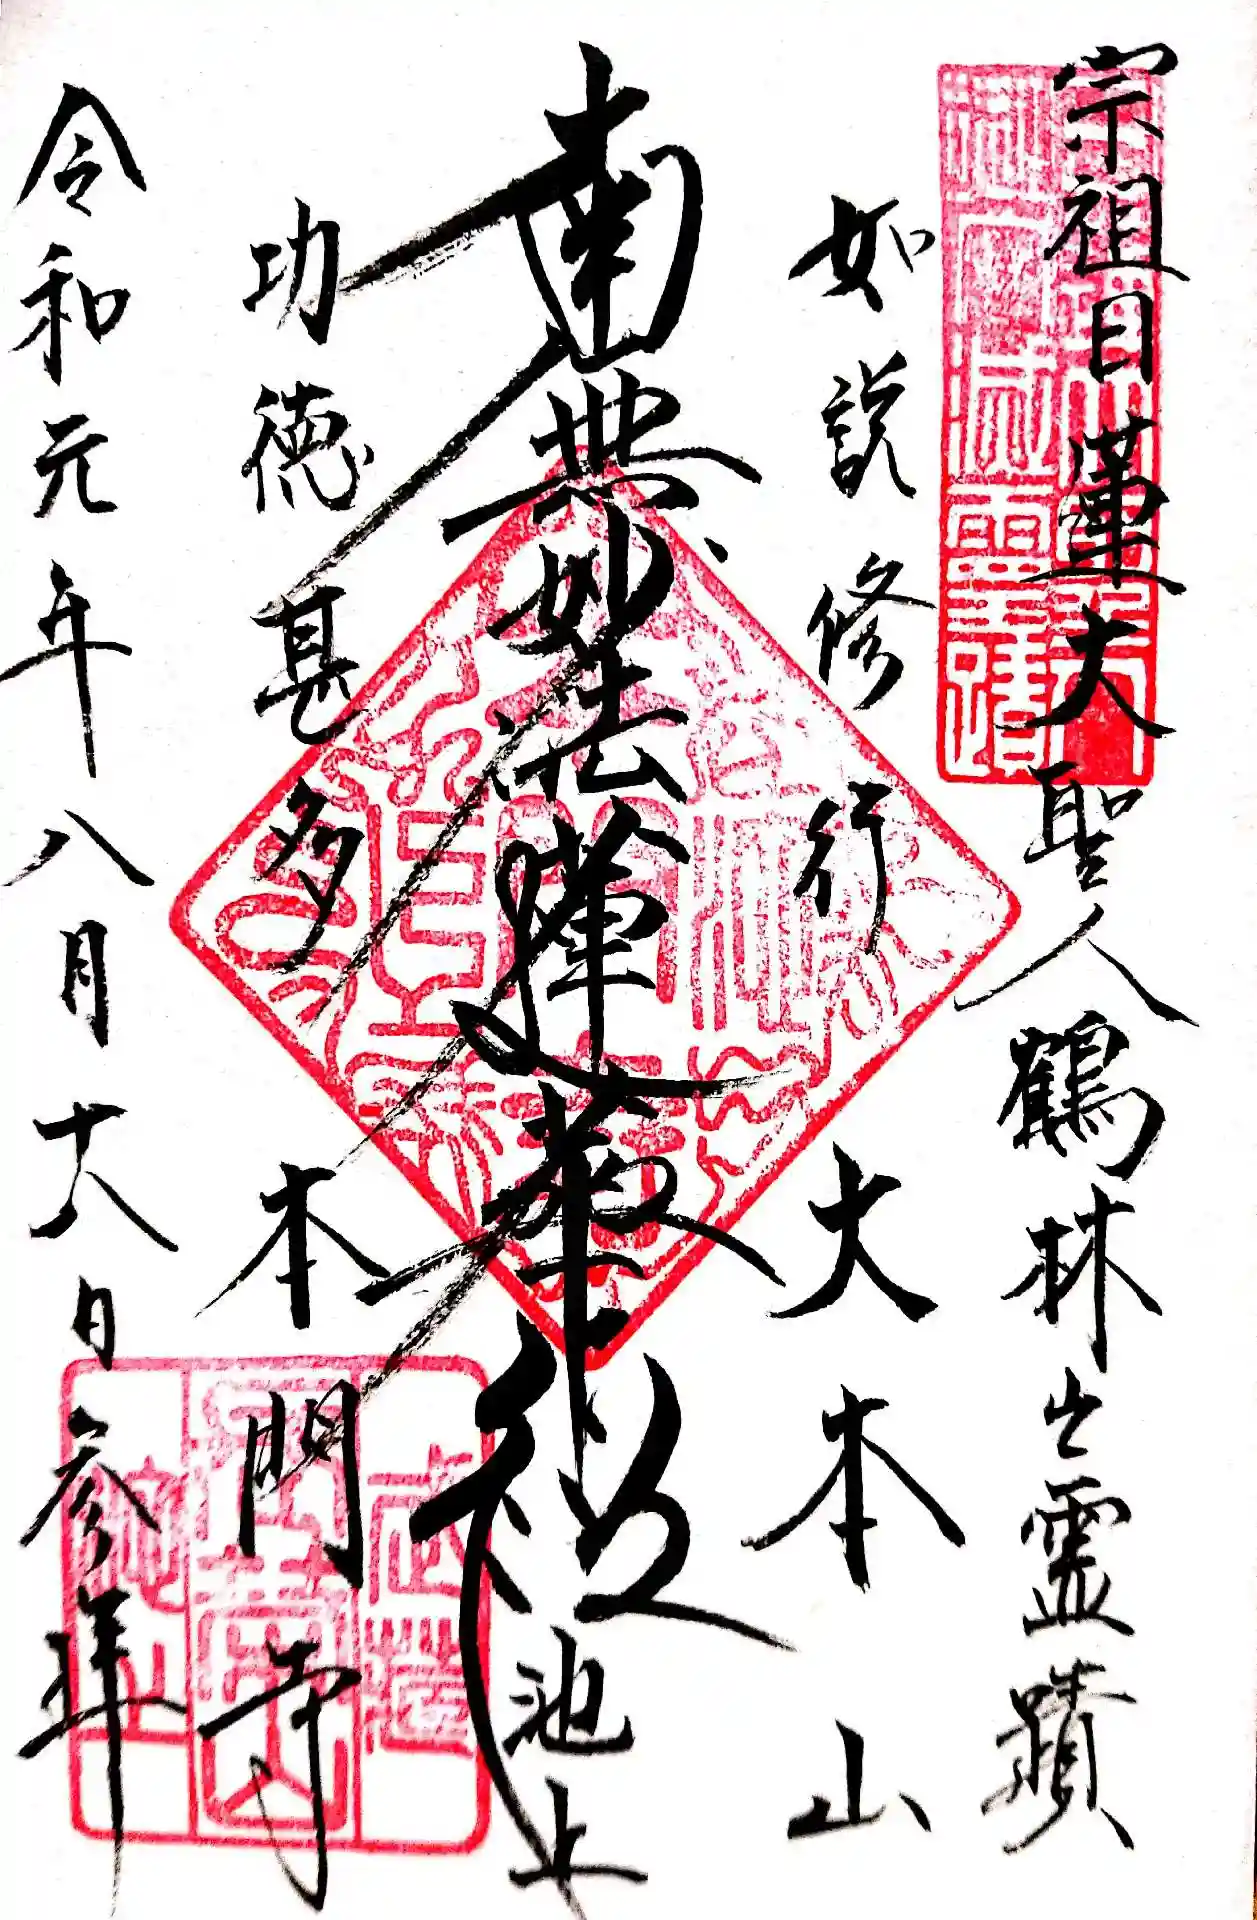 宗祖日蓮大聖人鶴林之霊蹟
如説修行 大本山
南無妙法蓮華経 池上
功徳甚多 本門寺
令和元年八月十八日 参拝